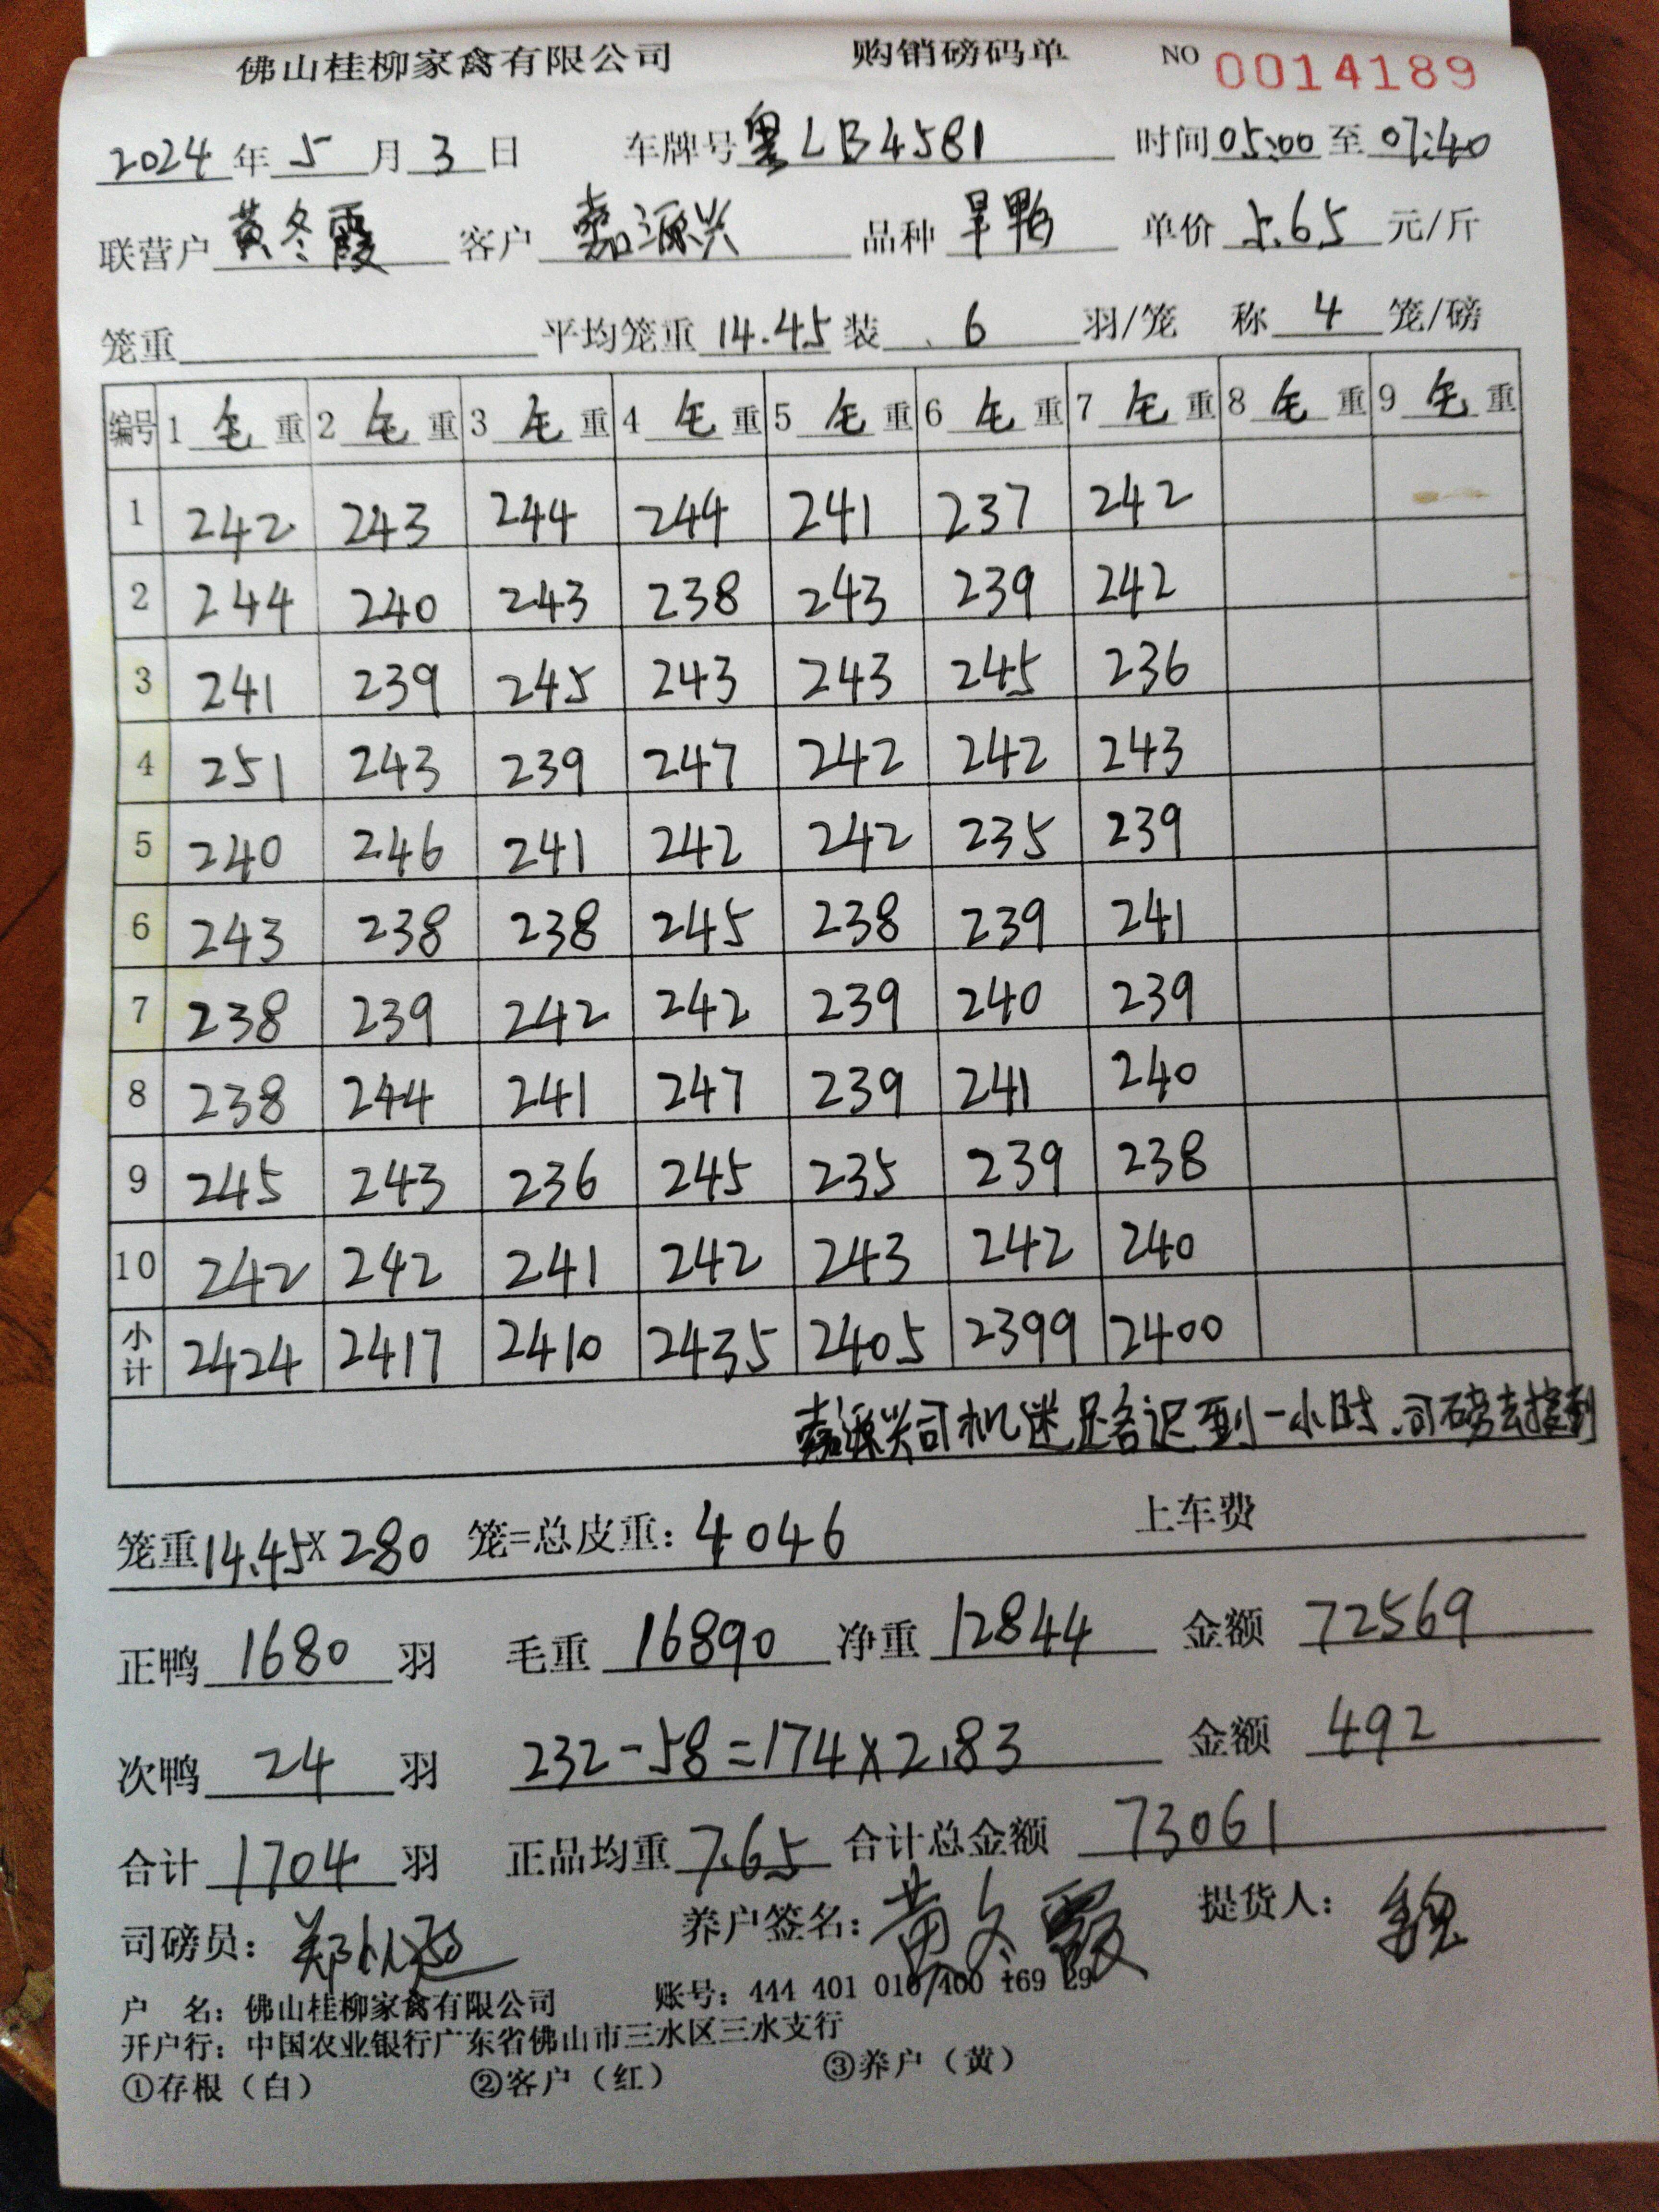 佛山桂柳家禽有限公司 购销磅码单 NO 0014189
2024年5月3日 车牌号 粤LB4581 时间05:00至07:40
联营户 黄冬霞 客户 嘉源兴 品种 旱鸭 单价 5.65 元/斤
笼重 平均笼重 14.45 装 6 羽/笼 称 4 笼/磅
编号 1 毛 重 2 毛 重 3 毛 重 4 毛 重 5 毛 重 6 毛 重 7 毛 重 8 毛 重 9 毛 重
1 242 243 244 244 241 237 242
2 244 240 243 238 243 239 242
3 241 239 245 243 243 245 236
4 251 243 239 247 242 242 243
5 240 246 241 242 242 235 239
6 243 238 238 245 238 239 241
7 238 239 242 242 239 240 239
8 238 244 241 247 239 241 240
9 245 243 236 245 235 239 238
10 242 242 241 242 243 242 240
小计 2424 2417 2410 2435 2405 2399 2400
嘉源兴司机迷路迟到一小时.司磅去接到
笼重14.45X280 笼=总皮重：4046 上车费
正鸭 1680 羽 毛重 16890 净重 12844 金额 72569
次鸭 24 羽 232-58=174X2.83 金额 492
合计 1704 羽 正品均重 7.65 合计总金额 73061
司磅员： 养户签名：黄冬霞 提货人： 魏
户 名：佛山桂柳家禽有限公司 账号：444 401 010 400 169 29
开户行：中国农业银行广东省佛山市三水区三水支行
①存根（白） ②客户（红） ③养户（黄）